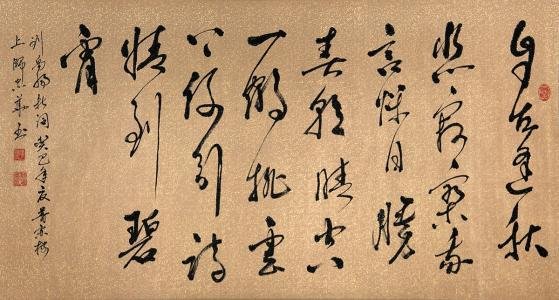 自古逢秋
悲寂寥我
言秋日勝
春朝晴空
一鶴排雲
上便引詩
情到碧
霄
刘禹錫秋词癸巳年夏
上